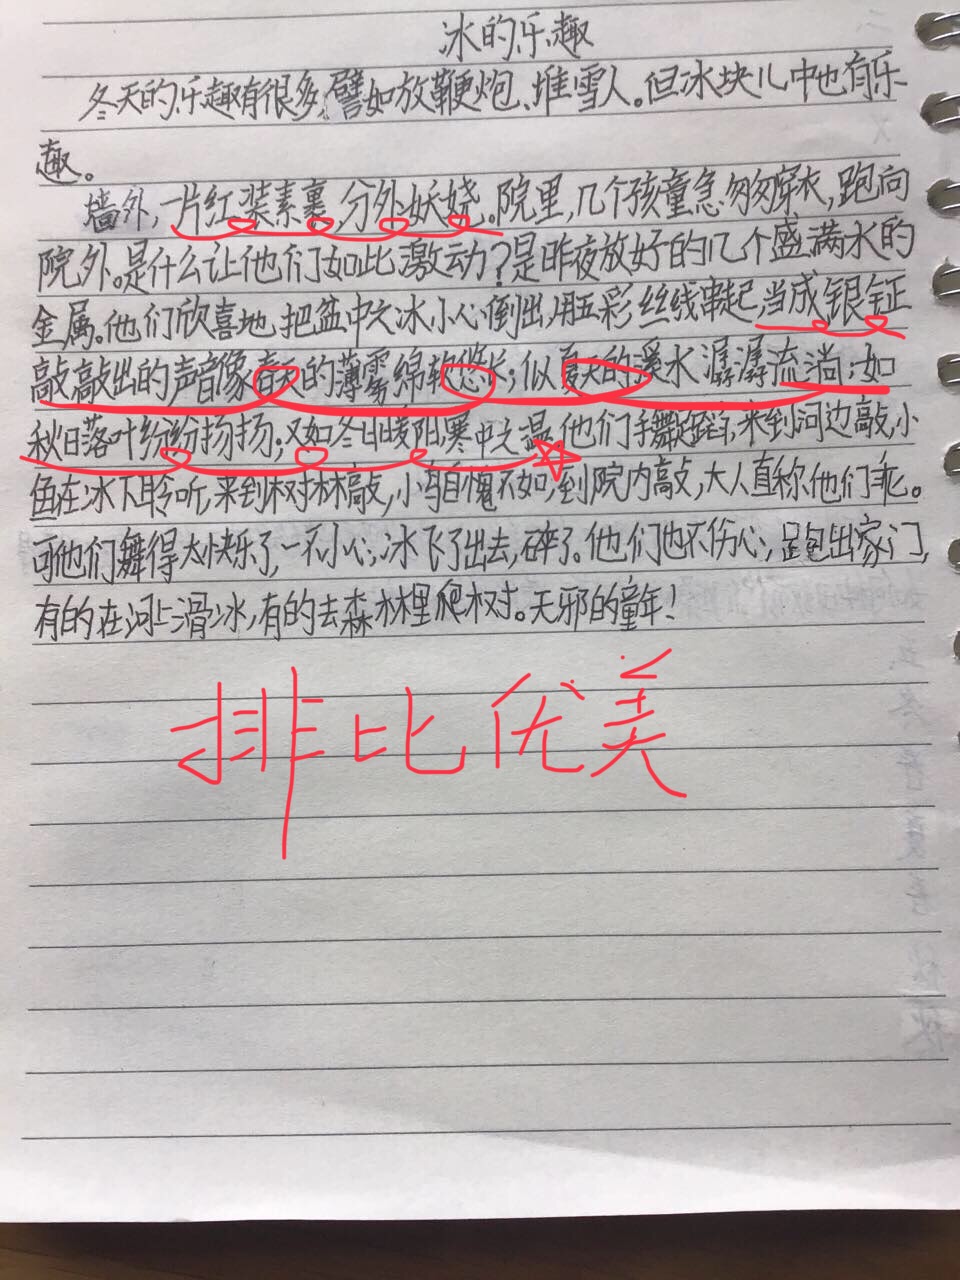 冰的乐趣
冬天的乐趣有很多,譬如放鞭炮、堆雪人。但冰块儿中也有乐
趣。
墙外,一片红装素裹,分外妖娆。院里,几个孩童急匆匆穿衣,跑向
院外。是什么让他们如此激动?是昨夜放好的几个盛满水的
金属。他们欣喜地把盆中之冰小心倒出,用五彩丝线串起,当成银钲
敲敲出的声音像春天的薄雾绵软悠长;似夏天的溪水潺潺流淌;如
秋日落叶纷纷扬扬;又如冬日暖阳,寒中之温。他们手舞足蹈,来到河边敲,小
鱼在冰下聆听,来到树林敲,小鸟自愧不如,到院内敲,大人直称他们乖。
可他们舞得太快乐了,一不小心,冰飞了出去,碎了。他们也不伤心,跑出家门,
有的在河上滑冰,有的去森林里爬树。天邪的童年!
排比优美